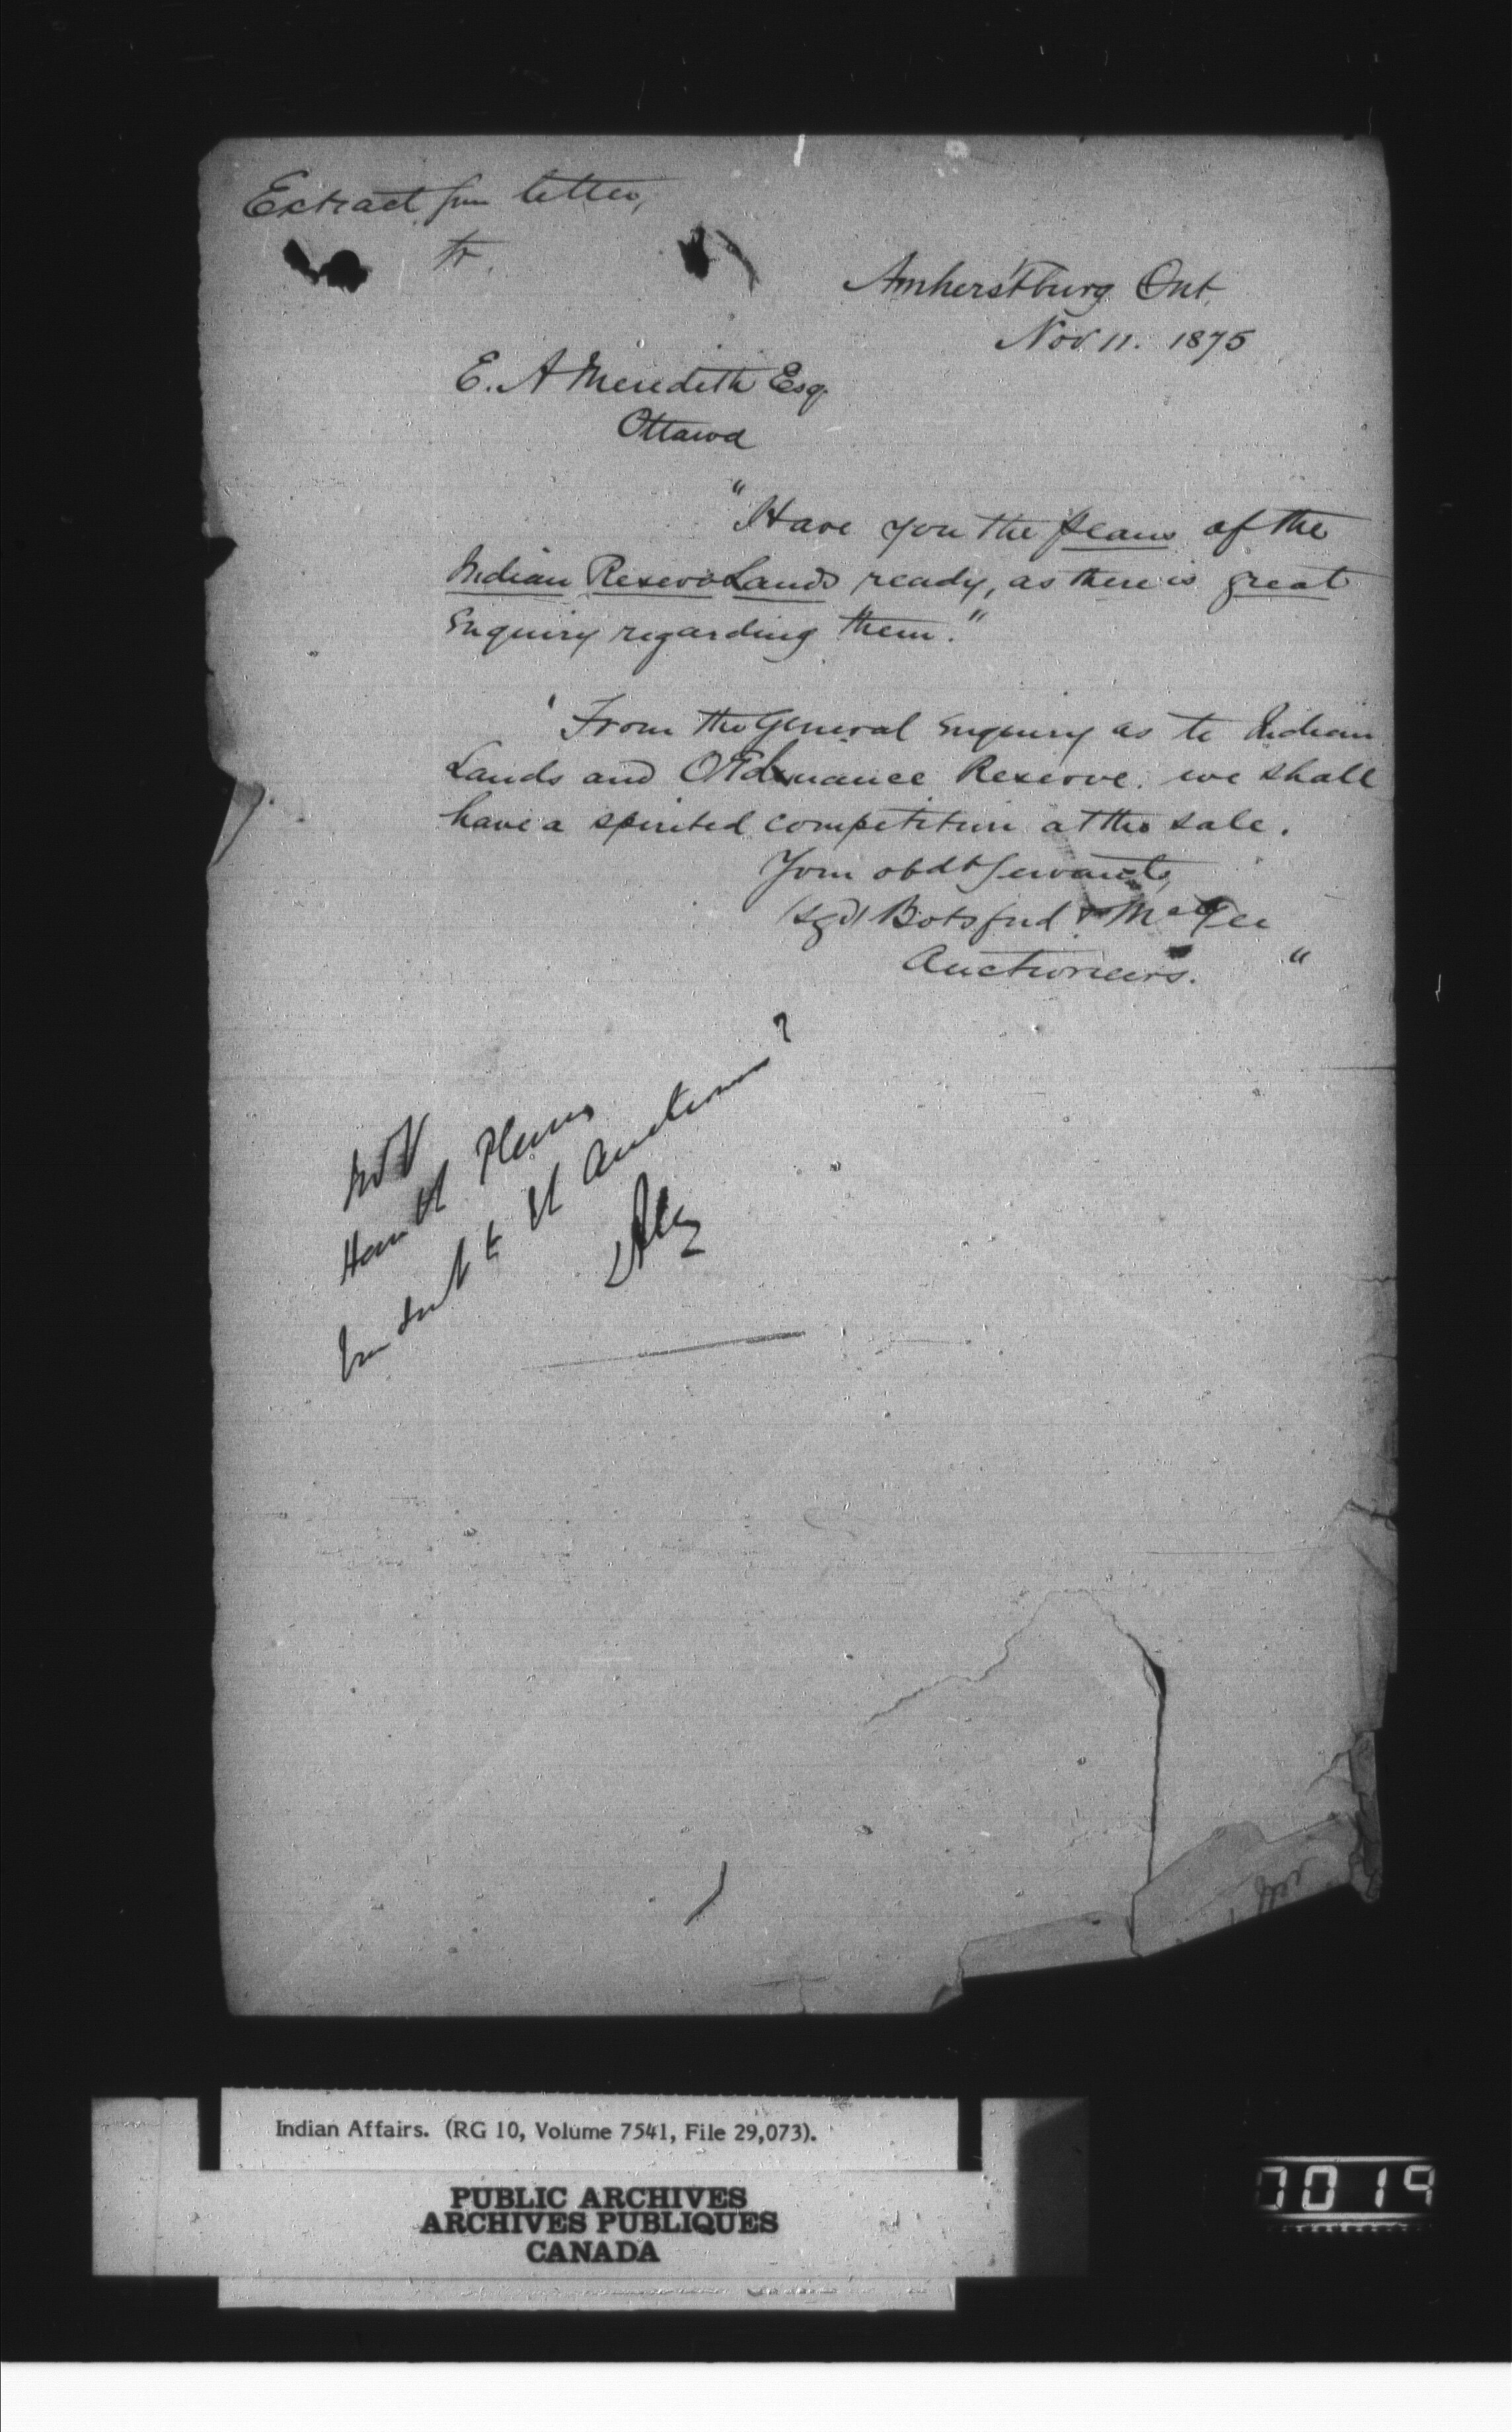 Extract from letter,
to.
Amherstburg Ont.
Nov 11. 1875
E. A Meredith Esq.
Ottawa
"Have you the plans of the
Indian Reserve Lands ready, as there is great
Enquiry regarding them."
'From the General Enquiry as to Indian
Lands and Ordnance Reserve. we shall
have a spirited competition at the sale.
Your obdt servants,
(sgd) Botsford & McGee
Auctioneers. "
Have the Plans
been sent to the Auctioneers?
Indian Affairs. (RG 10, Volume 7541, File 29,073).
PUBLIC ARCHIVES
ARCHIVES PUBLIQUES
CANADA
0019